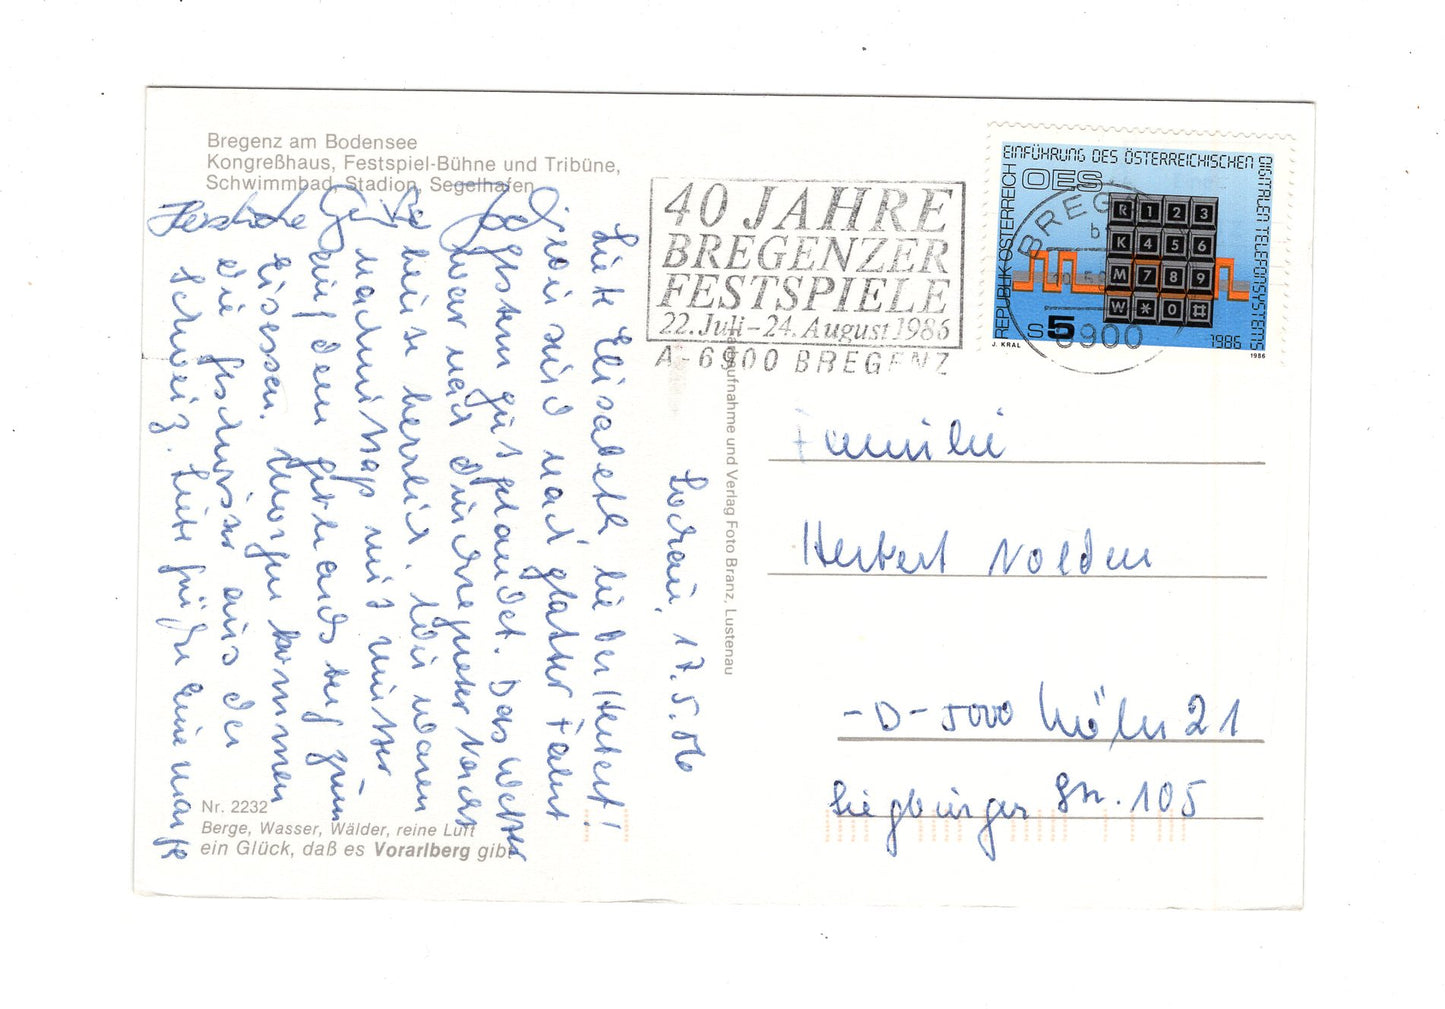 Bregenz am Bodensee
Kongreßhaus, Festspiel-Bühne und Tribüne,
Schwimmbad, Stadion, Segelhafen
40 JAHRE
BREGENZER
FESTSPIELE
22. Juli - 24. August 1986
A-6900 BREGENZ
EINFÜHRUNG DES ÖSTERREICHISCHEN
DIGITALEN TELEFONSYSTEMS
OES
REPUBLIK ÖSTERREICH
R 1 2 3
K 4 5 6
M 7 8 9
W * 0 #
S 5
1986
J. KRAL
1986
BREGENZ
b
6900
Lochau, 17.5.86
Liebe Elisabeth lieber Herbert!
Wir sind nach glatter Fahrt
gestern gut gelandet. Das Wetter
war nach durchregneter Nacht
heute herrlich. Wir waren
nachmittags mit Mutter
auf dem zum
Eisessen. Morgen kommen
die Geschwister aus der
Schweiz. Liebe Grüße eine
Herzliche Grüße
Aufnahme und Verlag Foto Branz, Lustenau
Familie
Herbert Nolden
-D-5000 Köln 21
Siegburger Str. 105
Nr. 2232
Berge, Wasser, Wälder, reine Luft
ein Glück, daß es Vorarlberg gibt